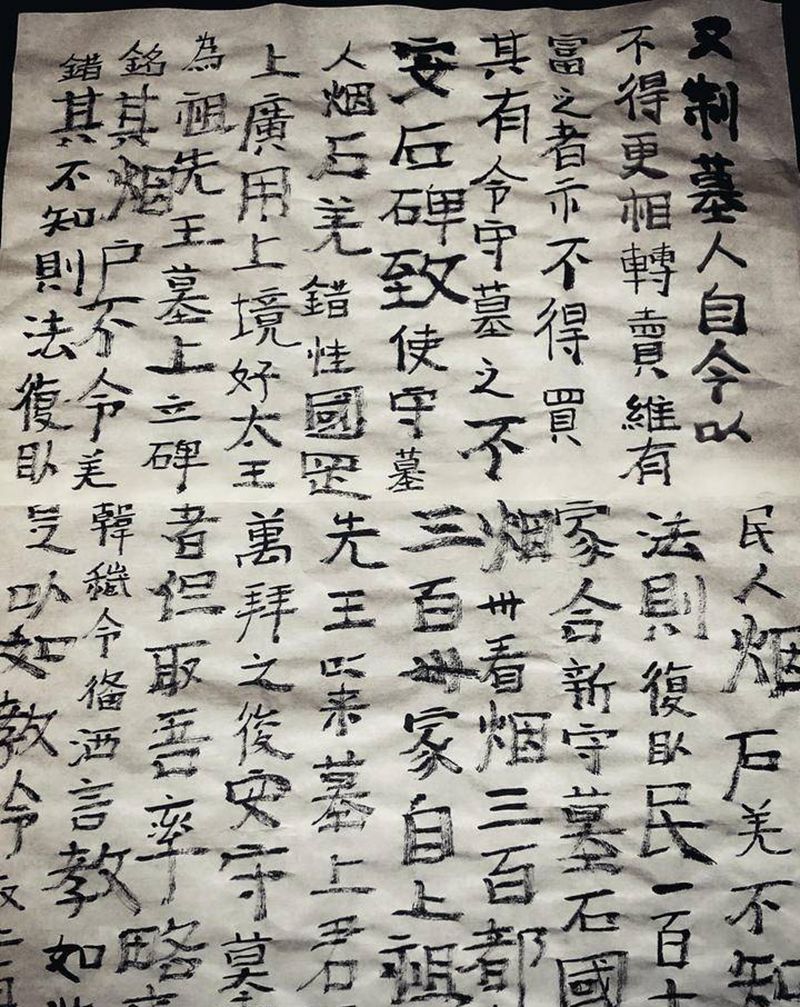 又制墓人自今以
不得更相轉賣維有
富之者亦不得買
其有令守墓之不
安石碑致使守墓
人烟石羌錯惟國罡
上廣用上境好太王
為祖先王墓上立碑
銘其烟户不令羌
錯其不知則法復臥
民人烟石羌不知
法則復臥民一百十
家合新守墓石國
烟卌看烟三百都
三百卌家自上祖
先王以来墓上君
萬拜之後安守墓
者但取吾率略
韓穢令俻洒言教如
是以如教令取二